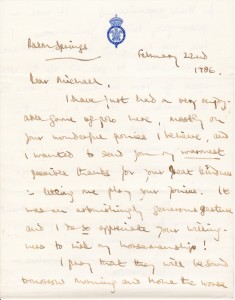 Palm Springs
February 22nd
1986.
Dear Michael,
I have just had a very enjoy-
able game of polo here, mostly on
your wonderful ponies I believe, and
I wanted to send you my warmest
possible thanks for your great kindness
in letting me play your ponies. It
was an astonishingly generous gesture
and I do so appreciate your willing-
ness to risk my horsemanship!
I pray that they will be sound
tomorrow morning and hope the worse